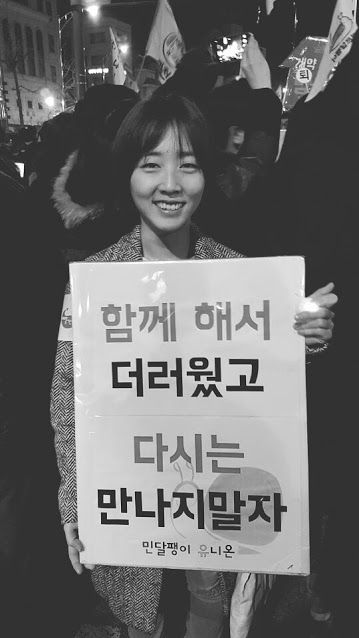 함께 해서
더러웠고
다시는
만나지말자
민달팽이 유니온